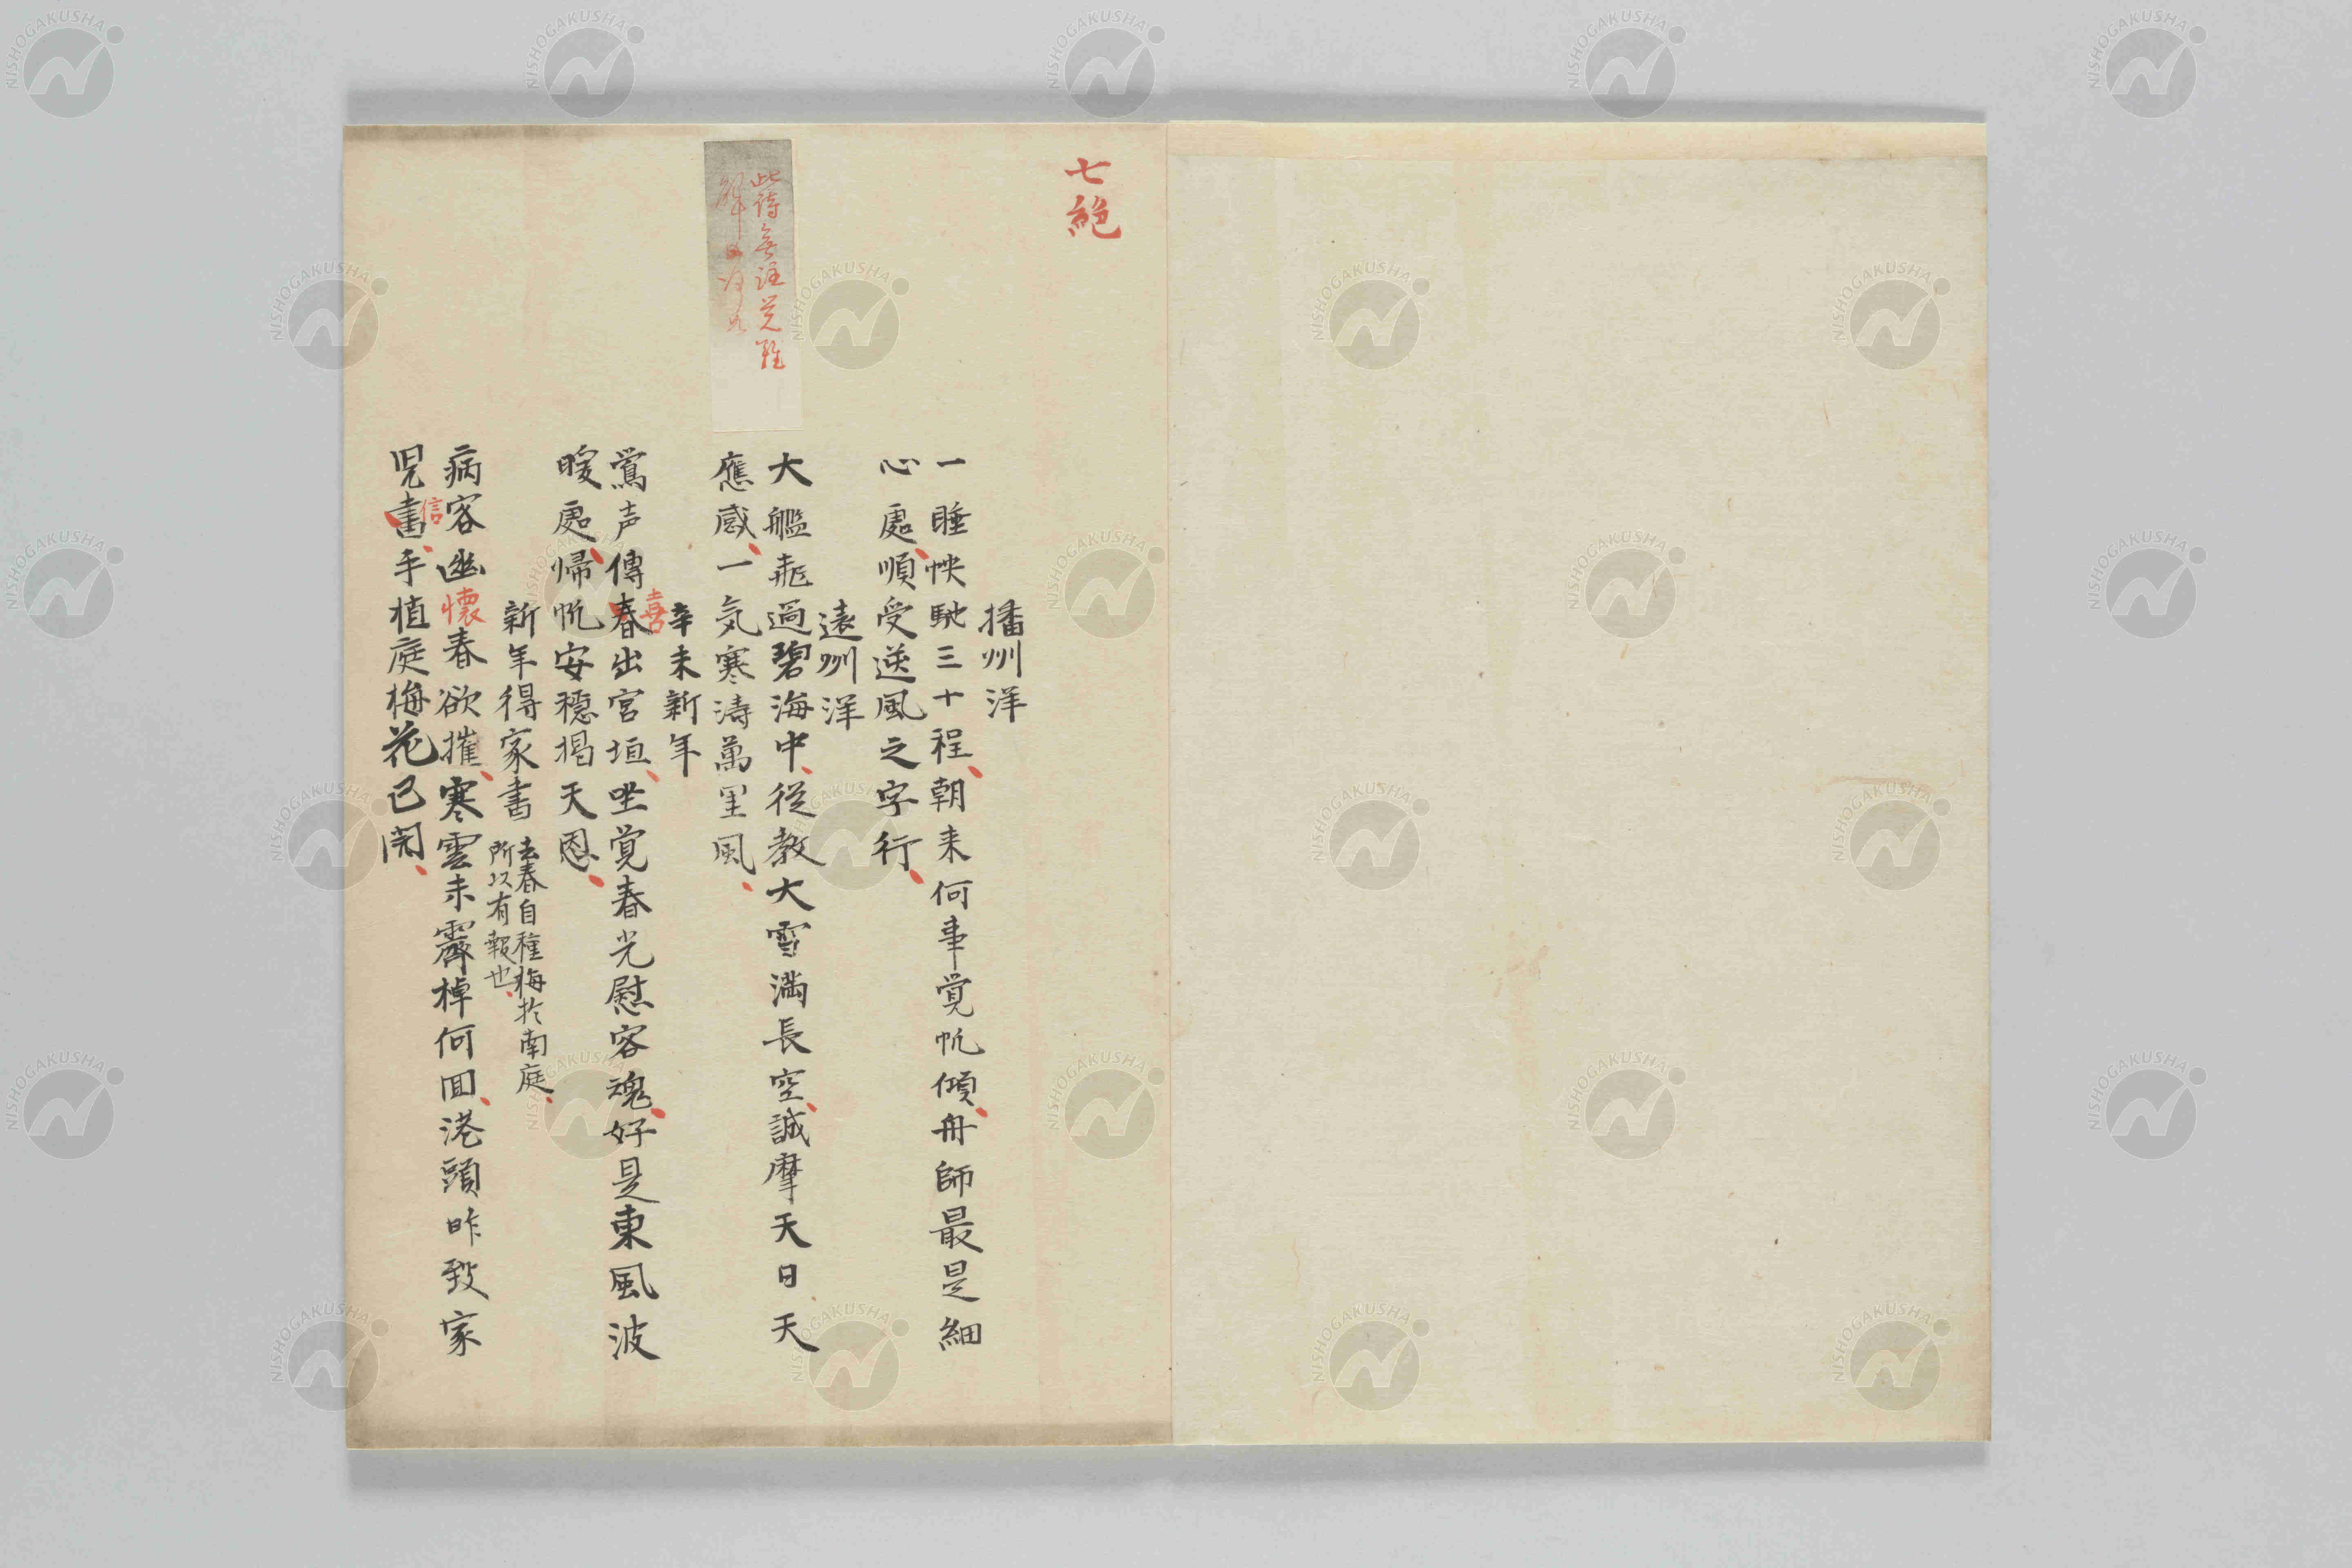 七絶
播州洋
一睡怏馳三十程朝来何事覚帆傾舟師最是細
心處順受逆風之字行
遠州洋
大艦飛過碧海中従教大雪満長空誠摩天日天
應感一気寒涛萬里風
此詩無註覚難
解
辛未新年
鶯声傳春出宮垣坐覚春光慰客魂好是東風波
喜
暖處帰帆安穏掲天恩
新年得家書
去春自種梅於南庭
所以有報也
病客幽懐春欲摧寒雲未霽棹何回港頭昨致家
信
児書手植庭梅花已開
NISHOGAKUSHA